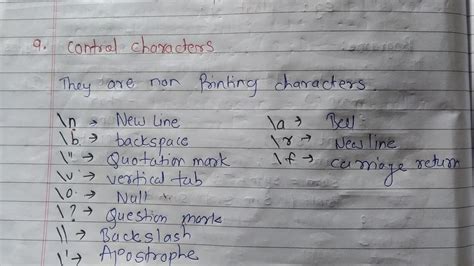 9. Control characters
They are non Printing characters.
\n → New Line
\b → backspace
\" → Quotation mark
\v → vertical tab
\0 → Null
\? → Question mark
\\ → Backslash
\' → Apostrophe
\a → Bell
\r → New line
\f → carriage return